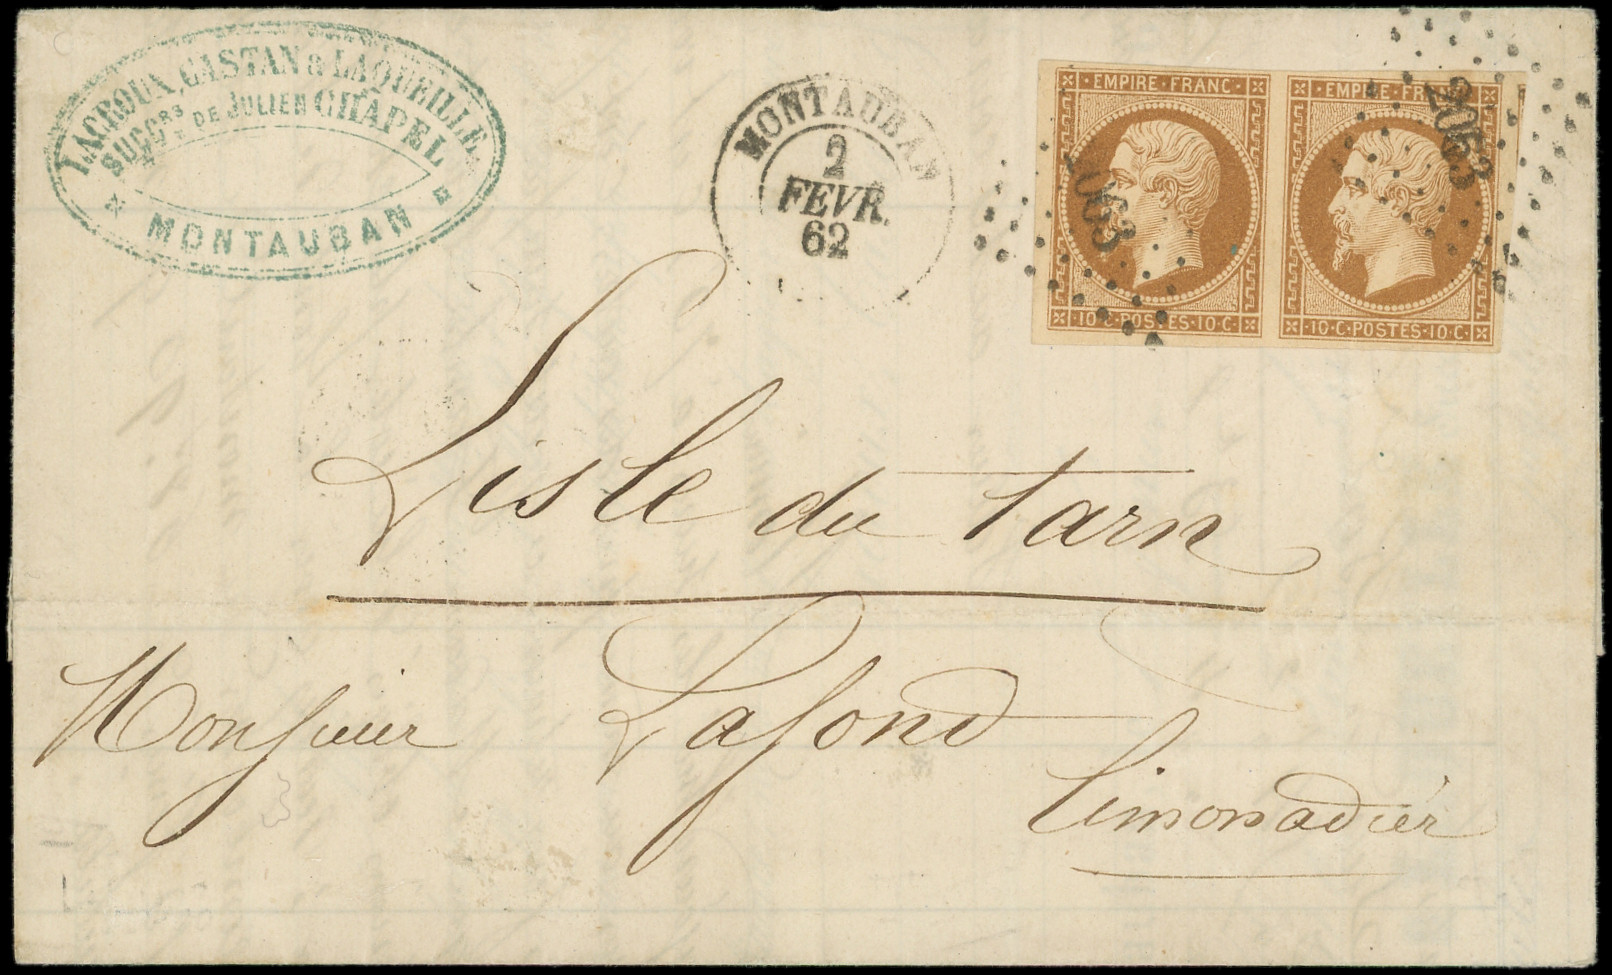 LACROUX, CASTAN & LAQUEILLE,
SUCCrs DE JULIEN CHAPEL
MONTAUBAN
MONTAUBAN
2
FEVR.
62
EMPIRE · FRANC ·
10 · C · POSTES · 10 · C ·
2063
EMPIRE · FRANC
10 · C · POSTES · 10 · C ·
2063
Lisle du tarn
Monsieur Lafond
limonadier